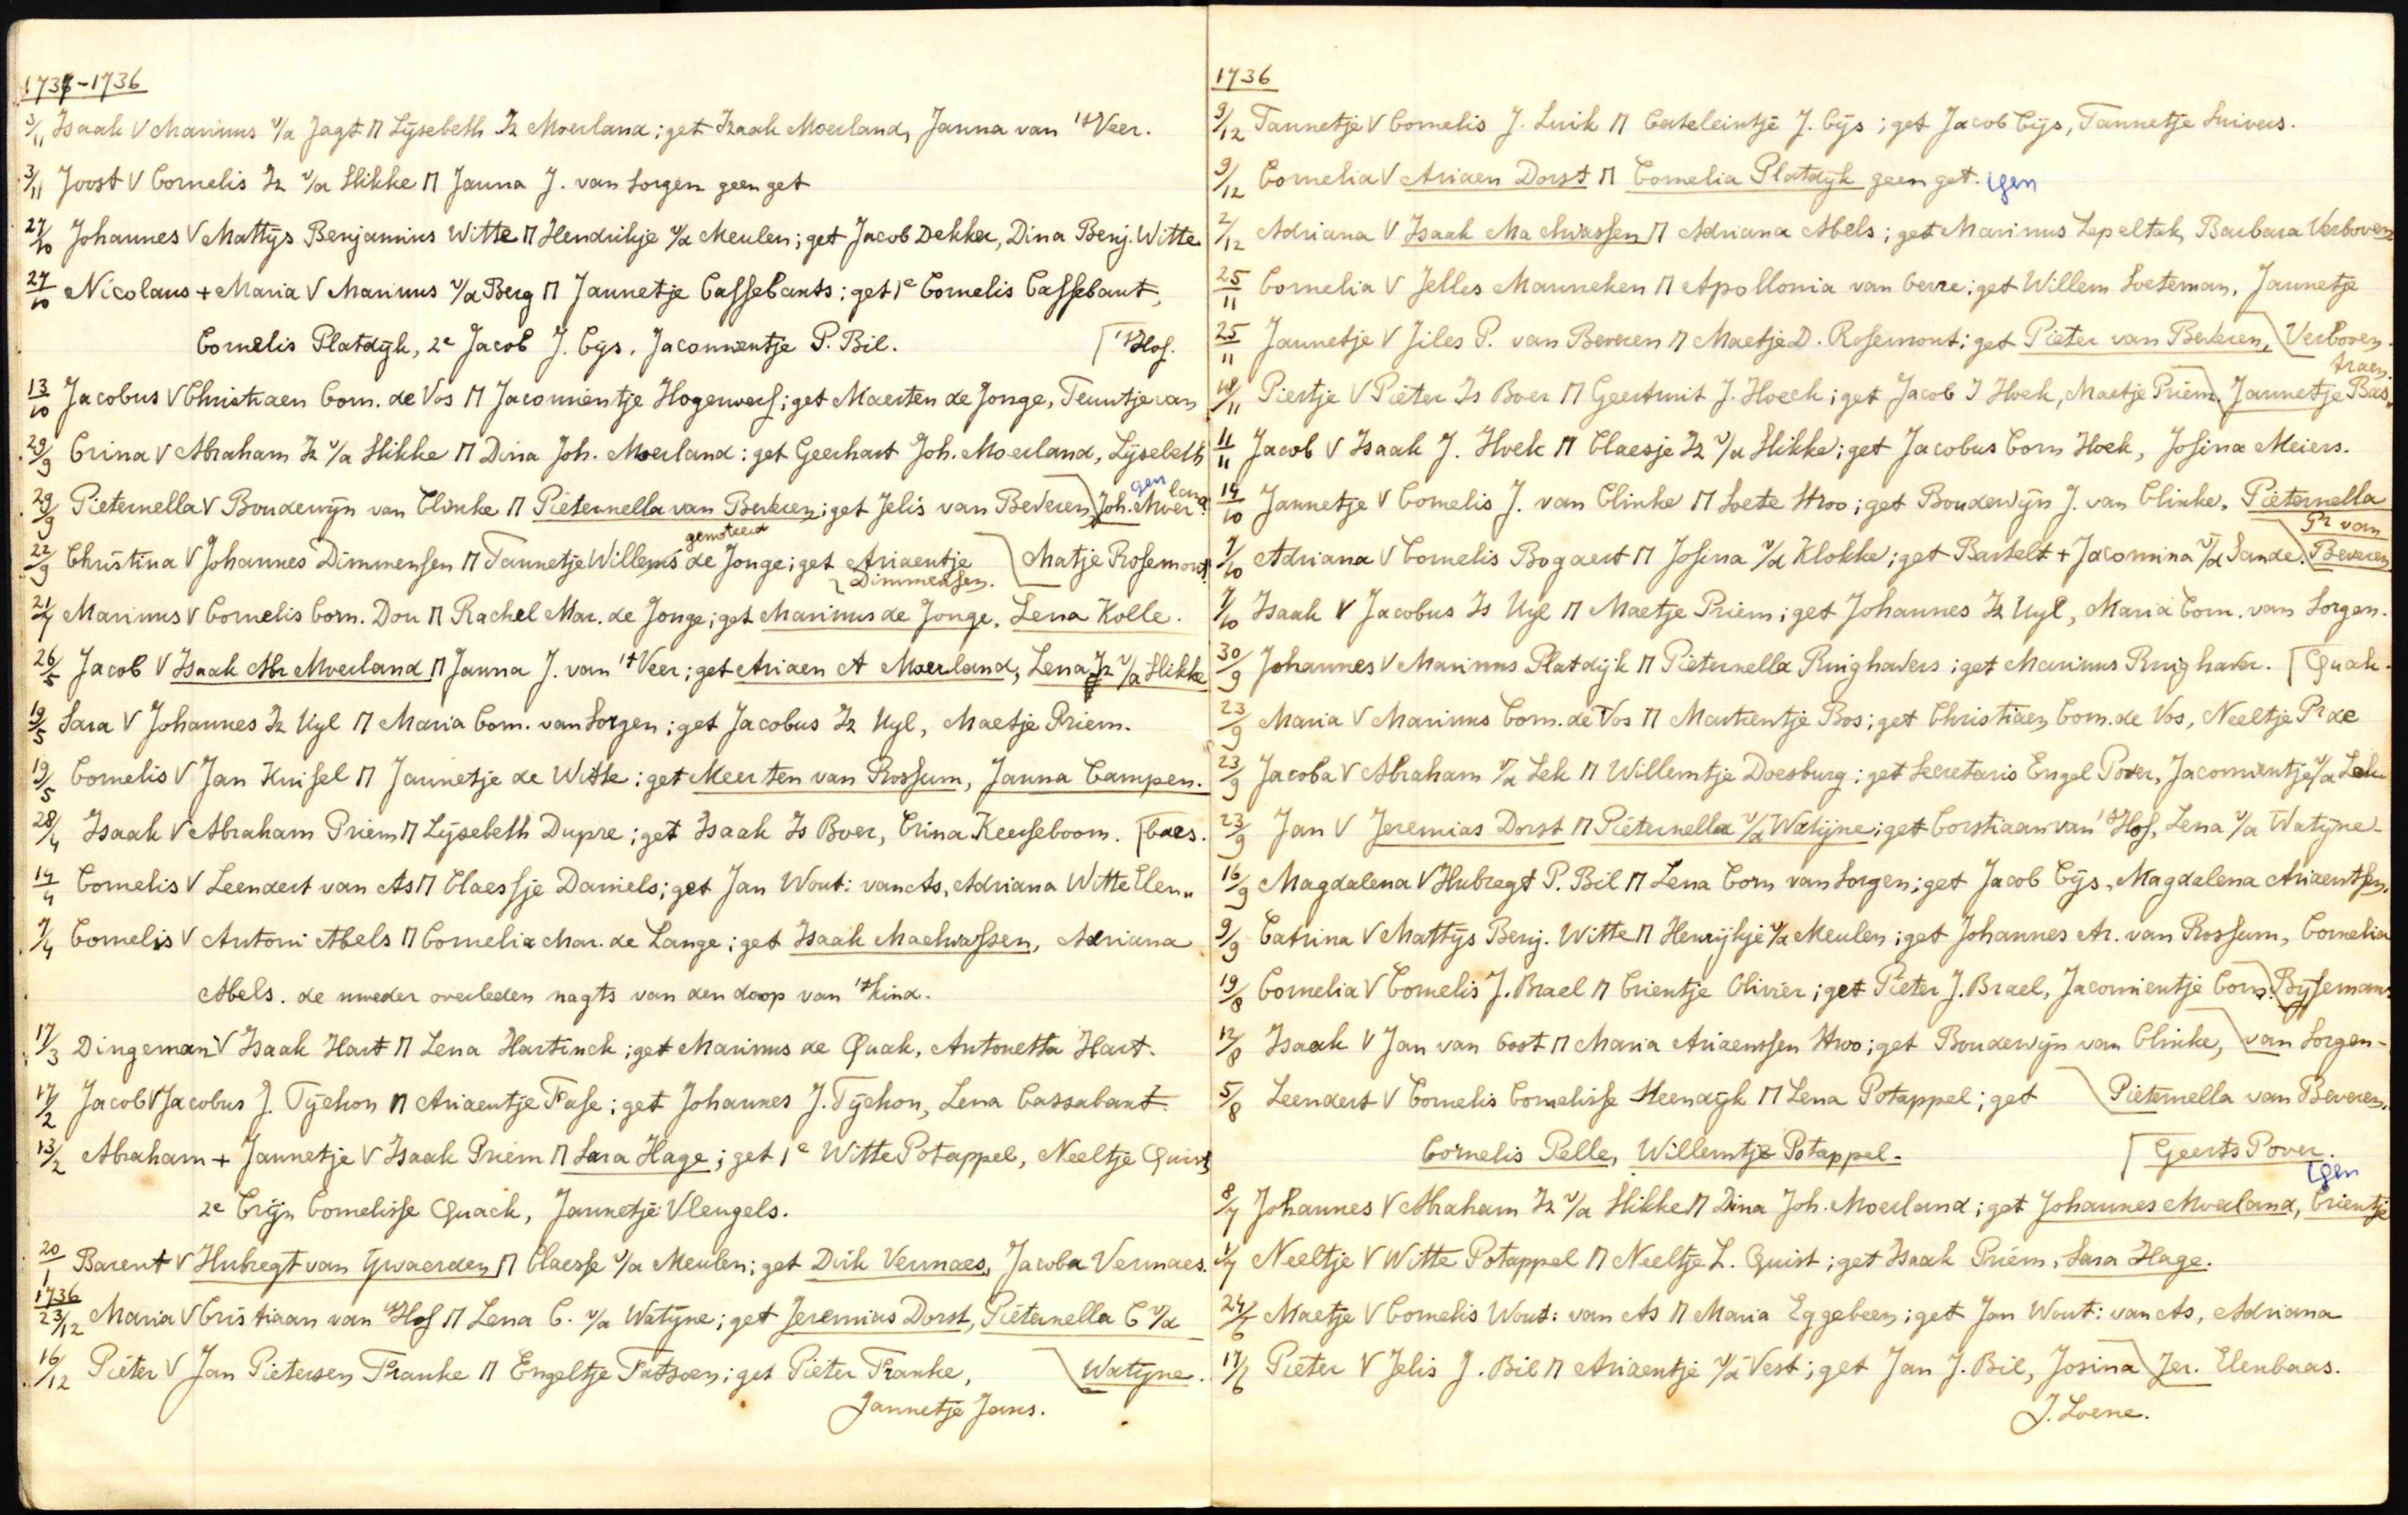 1737-1736
3/11 Isaak V Marinus v/d Jagt M Lijsebeth Iz Moerland; get Izaak Moerland, Janna van 't Veer.
3/11 Joost V Cornelis Iz v/d Slikke M Janna J. van Sorgen geen get
27/10 Johannes V Mattijs Benjamins Witte M Hendrikje v/d Meulen; get Jacob Dekker, Dina Benj. Witte
27/10 Nicolaus + Maria V Marinus v/d Berg M Jannetje Cassebants; get 1e Cornelis Cassebant,
Cornelis Platdijk, 2e Jacob J. Cijs, Jacomientje P. Bil. [ 't Hof.
13/10 Jacobus V Christiaen Corn. de Vos M Jacomientje Hogerwerf; get Maerten de Jonge, Teuntje van
29/9 Crina V Abraham Iz v/d Slikke M Dina Joh. Moerland: get Geerhart Joh. Moerland, Lijsebeth
29/9 Pieternella V Boudewijn van Clinke M Pieternella van Beveren; get Jelis van Beveren \ Joh. Moerland gen
22/9 Christina V Johannes Dimmensen M Tannetje Willems de Jonge; get Ariaentje Dimmensen. \ Matje Rosemont
21/7 Marinus V Cornelis Corn. Don M Rachel Mar. de Jonge; get Marinus de Jonge, Lena Kolle.
26/5 Jacob V Isaak Abr Moerland M Janna J. van 't Veer; get Ariaen A Moerland, Lena Iz v/d Slikke
19/5 Sara V Johannes Iz Uyl M Maria Corn. van Sorgen; get Jacobus Iz Uyl, Maetje Priem.
19/5 Cornelis V Jan Knisel M Jannetje de Witte; get Meerten van Rossum, Janna Campen.
28/4 Isaak V Abraham Priem M Lijsebeth Dupre; get Isaak Is Boer, Crina Keerseboom. [baes.
14/4 Cornelis V Leendert van As M Claessje Daniels; get Jan Wout: van As, Adriana Witte Elen„
7/4 Cornelis V Antoni Abels M Cornelia Mar. de Lange; get Isaak Machwassen, Adriana
Abels. de moeder overleden nagts van den doop van 't kind.
17/3 Dingeman V Isaak Hart M Lena Hartinck; get Marinus de Quak, Antonetta Hart.
17/2 Jacob V Jacobus J. Tijchon M Ariaentje Fase; get Johannes J. Tijchon, Lena Cassabant
13/2 Abraham + Jannetje V Isaak Priem M Sara Hage; get 1e Witte Potappel, Neeltje Quist
2e Crijn Cornelisse Quack, Jannetje Vleugels.
20/1 Barent V Hubregt van IJwaerden M Claesse v/d Meulen; get Dirk Vermaes, Jacoba Vermaes.
1736
23/12 Maria V Cristiaan van 't Hof M Lena C. v/d Watijne; get Jeremias Dorst, Pieternella C v/d
16/12 Pieter V Jan Pietersen Franke M Engeltje Fatsoen; get Pieter Franke, \ Watijne.
Jannetje Jans.
1736
9/12 Tannetje V Cornelis J. Luik M Cateleintje J. Cijs; get Jacob Cijs, Tannetje Snivers.
9/12 Cornelia V Ariaen Dorst M Cornelia Platdijk geen get. gen
2/12 Adriana V Isaak Machwassen M Adriana Abels; get Marinus Lepeltak, Barbara Verboven
25/11 Cornelia V Jelles Manneken M Apollonia van Cerre; get Willem Soeteman, Jannetje
25/11 Jannetje V Jiles P. van Beveren M Maetje D. Rosemont; get Pieter van Beveren, \ Verboven.
18/11 Piertje V Pieter Is Boer M Geertruit J. Hoeck; get Jacob J Hoek, Maetje Priem \ Jannetje Bas„ traen.
11/11 Jacob V Isaak J. Hoek M Claesje Iz v/d Slikke; get Jacobus Corn Hoek, Josina Meiers.
14/10 Jannetje V Cornelis J. van Clinke M Soete Stroo; get Boudewijn J. van Clinke, Pieternella
7/10 Adriana V Cornelis Bogaert M Josina v/d Klokke; get Bartelt + Jacomina v/d Sande. \ Pr van Beveren
7/10 Isaak V Jacobus Is Uyl M Maetje Priem; get Johannes Iz Uyl, Maria Corn. van Sorgen.
30/9 Johannes V Marinus Platdijk M Pieternella Ruighavers; get Marinus Ruighaver. [Quak.
23/9 Maria V Marinus Corn. de Vos M Martientje Bos; get Christiaen Corn. de Vos, Neeltje Pr de
23/9 Jacoba V Abraham v/d Lek M Willemtje Doesburg; get Secretaris Engel Pover, Jacomientje v/d Lek
23/9 Jan V Jeremias Dorst M Pieternella v/d Watijne; get Corstiaan van 't Hof, Lena v/d Watijne
16/9 Magdalena V Hubregt P. Bil M Lena Corn van Sorgen; get Jacob Cijs, Magdalena Ariaentsen.
9/9 Catrina V Mattijs Benj. Witte M Henrijkje v/d Meulen; get Johannes Ar. van Rossum, Cornelia
19/8 Cornelia V Cornelis J. Brael M Crientje Olivier; get Pieter J. Brael, Jacomientje Corn. \ Bijsemans
12/8 Isaak V Jan van Oost M Maria Ariaenssen Stroo; get Boudewijn van Clinke, \ van Sorgen-
5/8 Leendert V Cornelis Cornelisse Steendijk M Lena Potappel; get \ Pieternella van Beveren.
Cornelis Pelle, Willemtje Potappel. [ Geerts Pover. gen
8/7 Johannes V Abraham Iz v/d Slikke M Dina Joh. Moerland; get Johannes Moerland, Crientje
1/7 Neeltje V Witte Potappel M Neeltje L. Quist; get Isaak Priem, Sara Hage.
24/6 Maetje V Cornelis Wout: van As M Maria Eggebeen; get Jan Wout: van As, Adriana
17/6 Pieter V Jelis J. Bil M Ariaentje v/d Vest; get Jan J. Bil, Josina \ Jer. Elenbaas.
J. Loene.